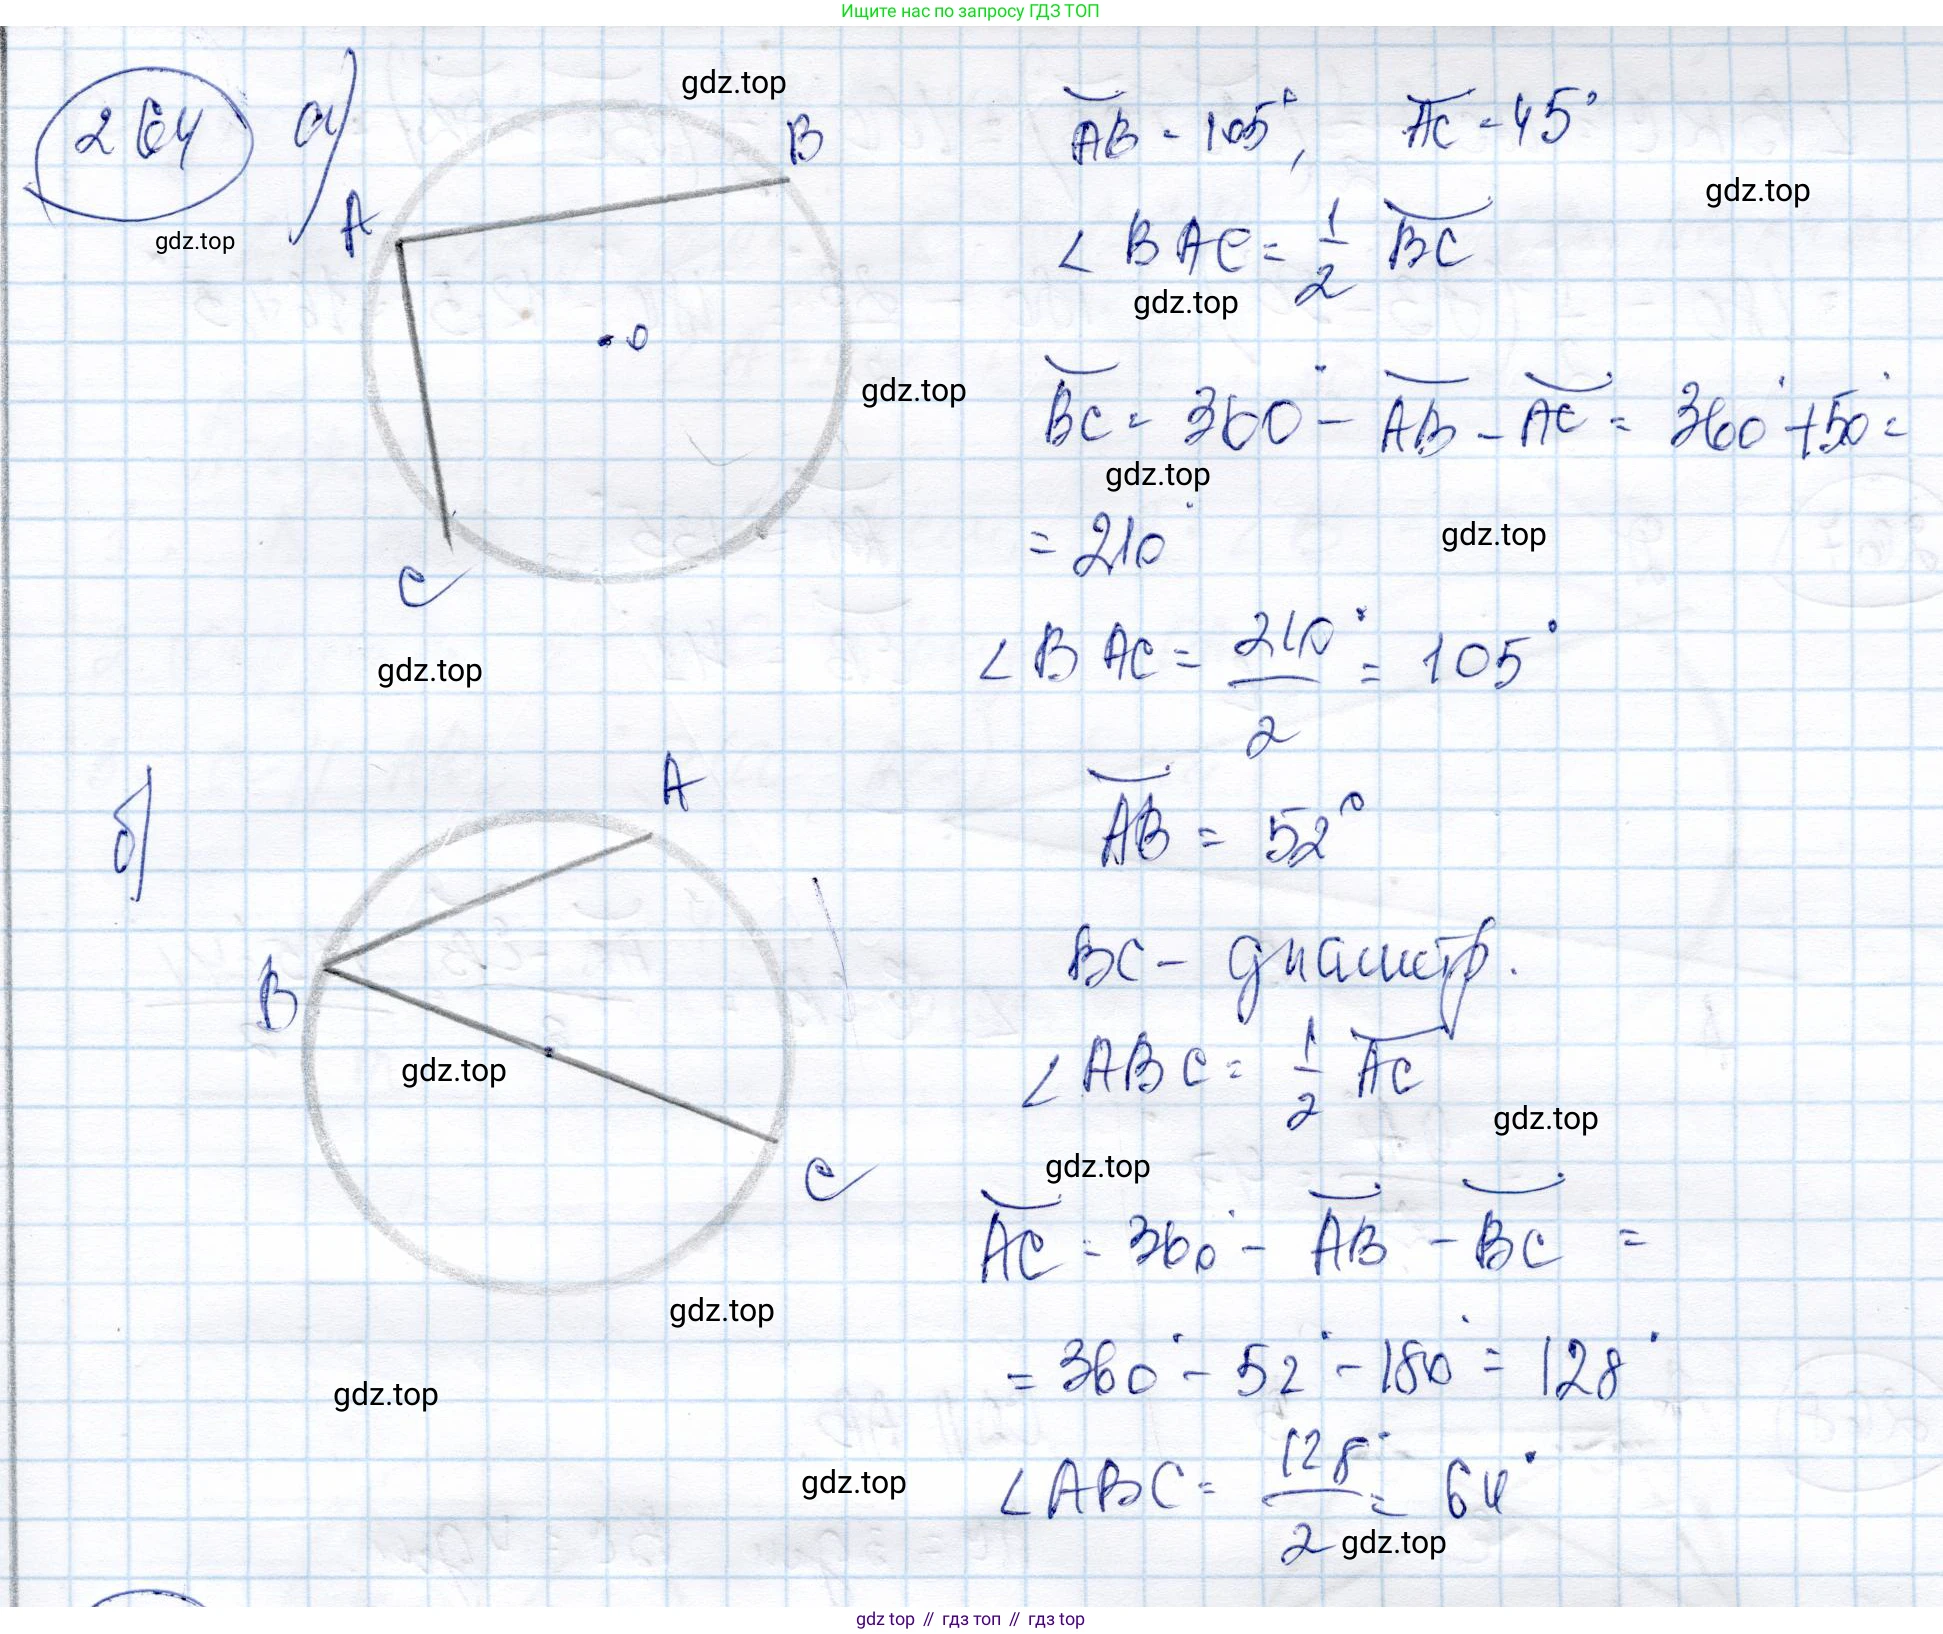 Ищите нас по запросу ГДЗ ТОП
264 а)
gdz.top
A
B
C
O
gdz.top
gdz.top
gdz.top
AB = 105°, AC = 45°
gdz.top
∠BAC = 1/2 BC
gdz.top
BC = 360° - AB - AC = 360° + 50° =
gdz.top
= 210°
gdz.top
∠BAC = 210°/2 = 105°
б)
A
B
C
gdz.top
gdz.top
gdz.top
gdz.top
AB = 52°
BC - диаметр.
∠ABC = 1/2 AC
gdz.top
gdz.top
AC = 360° - AB - BC =
= 360° - 52° - 180° = 128°
∠ABC = 128°/2 = 64°
gdz.top
gdz top // гдз топ // гдз top